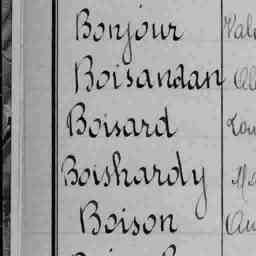 Bonjour
Boisandan
Boisard
Boishardy
Boison